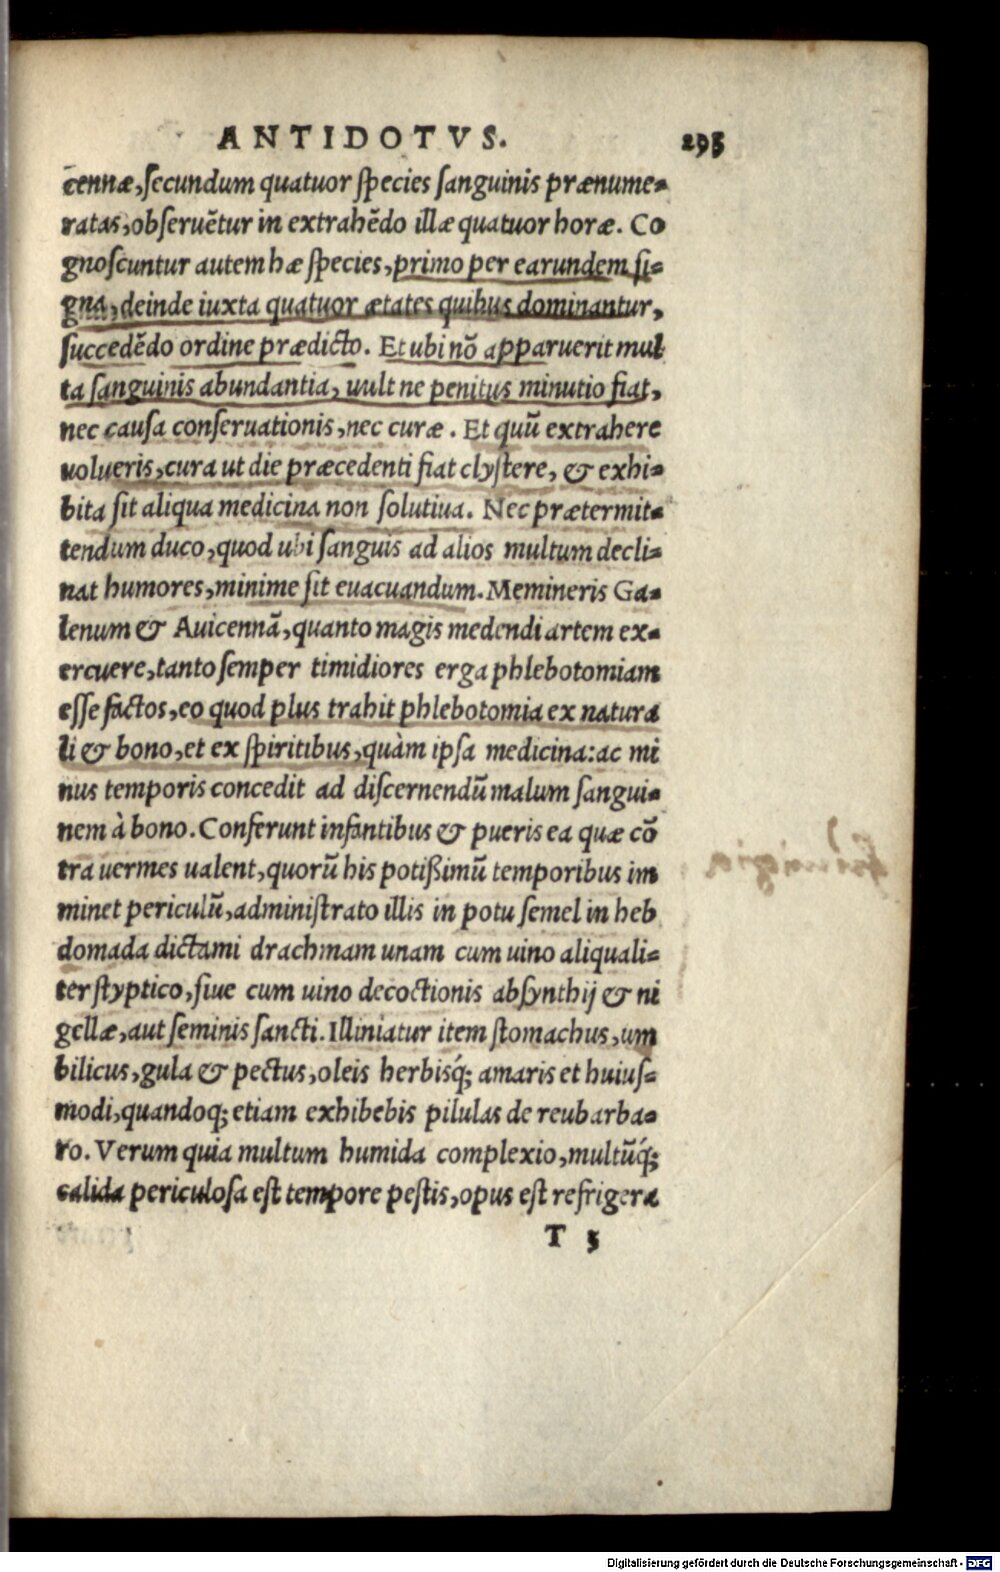 ANTIDOTVS. 295
cennæ, secundum quatuor species sanguinis prænume-
ratas, obseruẽtur in extrahẽdo illæ quatuor horæ. Co
gnoscuntur autem hæ species, primo per earundem si-
gna, deinde iuxta quatuor ætates quibus dominantur,
succedẽdo ordine prædicto. Et ubi nõ apparuerit mul
ta sanguinis abundantia, uult ne penitus minutio fiat,
nec causa conseruationis, nec curæ. Et quũ extrahere
uolueris, cura ut die præcedenti fiat clystere, & exhi-
bita sit aliqua medicina non solutiua. Nec prætermit-
tendum duco, quod ubi sanguis ad alios multum decli-
nat humores, minime sit euacuandum. Memineris Ga-
lenum & Auicennã, quanto magis medendi artem ex-
ercuere, tanto semper timidiores erga phlebotomiam
esse factos, eo quod plus trahit phlebotomia ex natura
li & bono, et ex spiritibus, quàm ipsa medicina: ac mi
nus temporis concedit ad discernendũ malum sangui-
nem à bono. Conferunt infantibus & pueris ea quæ cõ
tra uermes ualent, quorũ his potißimũ temporibus im
minet periculũ, administrato illis in potu semel in heb
domada dictami drachmam unam cum uino aliquali-
ter styptico, siue cum uino decoctionis absynthij & ni
gellæ, aut seminis sancti. Illiniatur item stomachus, um
bilicus, gula & pectus, oleis herbisq́; amaris et huius-
modi, quandoq; etiam exhibebis pilulas de reubarba-
ro. Verum quia multum humida complexio, multũq́;
calida periculosa est tempore pestis, opus est refrigera
T 3
Digitalisierung gefördert durch die Deutsche Forschungsgemeinschaft - DFG